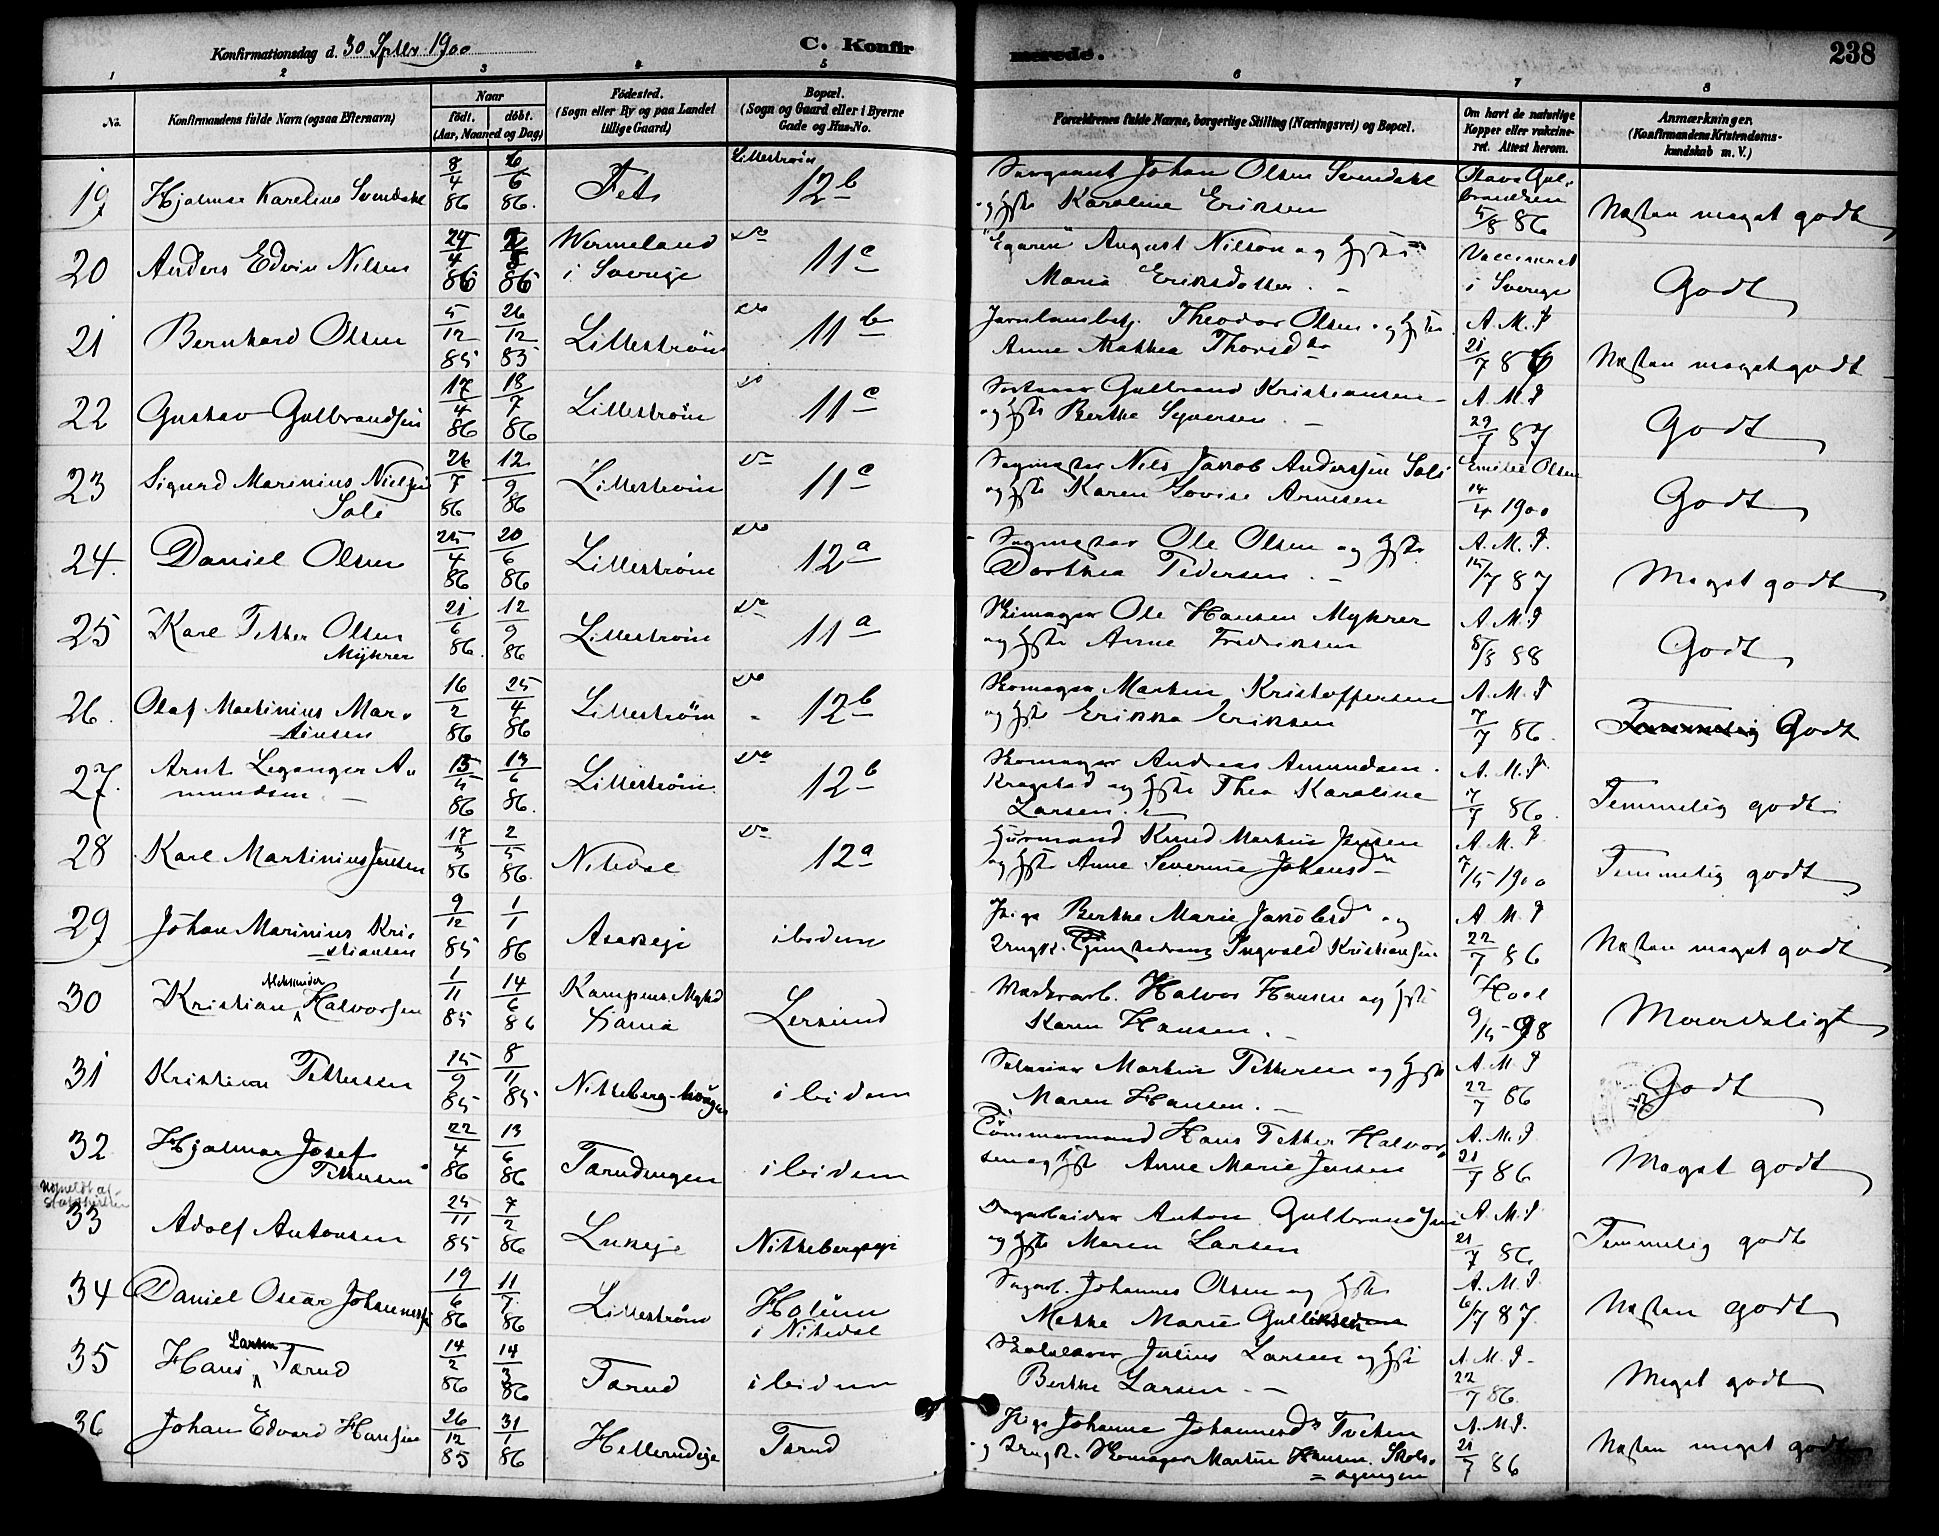 Konfirmationsdag d. 30 Septbr 1900
C. Konfir
merede.
238
1 2 3 4 5 6 7 8
No.
Konfirmandens fulde Navn (ogsaa Efternavn)
Naar
født. døbt.
(Aar, Maaned og Dag)
Fødested.
(Sogn eller By og paa Landet
tillige Gaard)
Bopæl.
(Sogn og Gaard eller i Byerne
Gade og Hus-No.
Forældrenes fulde Navne, borgerlige Stilling (Næringsvei) og Bopæl.
Om havt de naturlige
Kopper eller vakcine-
ret. Attest herom.
Anmærkninger.
(Konfirmandens Kristendoms-
kundskab m. V.)
19 Hjalmar Karelius Svendahl 8/4 86 6/6 86. Fet Lillestrøm 12b
Sergeant Johan Olsen Svendahl
og Hstr Karoline Eriksen
Olava Gul-
brandsen
5/8 86
Næsten meget godt
20 Anders Edvin Nilsen 24/4 86 86 Wermeland
i Sverige do 11c
"Egaren" August Nilson og Hstr
Maria Eriksdatter.
Vaccineret
i Sverige
Godt
21 Bernhard Olsen 5/12 85 26/12 85 Lillestrøm do 11b
Theodor Olsen og Hstr
Anne Mathea Thorsdtr
A. M. I
21/7 86
Næsten meget godt
22 Gustav Gulbrandsen 17/4 86 18/7 86 Lillestrøm do 11c
Gulbrand Kristiansen
og Hstr Berthe Syversen
A. M. I
29/7 87
Godt
23 Sigurd Marinius Nielsen
Soli 26/7 86 12/9 86 Lillestrøm do 11c
Sagmester Nils Jakob Anderssen Soli
og Hstr Karen Lovise Arnesen
Emilie Olsen
14/4 1900
Godt
24. Daniel Olsen 25/4 86 20/6 86 Lillestrøm do 12a
Sagmester Ole Olsen og Hstr
Dorthea Pedersen.
A. M. I.
15/7 87
Meget godt
25 Karl Petter Olsen
Myhrer 21/6 86. 12/9 86 Lillestrøm do 11a
Skimager Ole Hansen Myhrer
og Hstr Anne Fredriksen
A. M. I
8/8 88
Godt
26. Olaf Martinius Mar-
tinsen 16/2 86 25/4 86 Lillestrøm do 12b
Skomager Martin Kristoffersen
og Hstr Erikka Eriksen
A. M. I
7/7 86.
Temmelig Godt
27. Arnt Leganger A-
mundsen 15/4 86 13/6 86. Lillestrøm do 12b
Skomager Andreas Amundsen
Kragstad og Hstr Thea Karoline
Larsen.
A. M. I.
7/7 86.
Temmelig godt
28 Karl Martinius Jensen 17/3 86 2/5 86. Nitedal do 12a
Huusmand Knud Martin Jensen
og Hstr Anne Severine Johansdtr
A. M. I.
7/5 1900
Temmelig godt
29 Johan Marinius Kri-
stiansen 9/12 85 1/1 86 Asakeje ibidem
Pige Berthe Marie Jakobsdr og
Ungk. Ingvald Kristiansen
A. M. I
22/7 86
Næsten meget godt
30 Kristian Aleksander Halvorsen 1/11 85 14/6 86 Kampens Mghd
Xania Lersund
Halvor Hansen og Hstr
Karen Hansen.
Hoel
9/5-98
Maadeligt
31 Kristian Pettersen 15/9 85 8/11 85 Nitteberg-haugen ibidem
Martin Pettersen og Hstr
Maren Hansen.
A. M. I
22/7 86
Godt
32 Hjalmar Josef
Pettersen 22/4 86 13/6 86 Tærudengen ibidem
Tømmermand Hans Petter Halvor-
sen og Hstr Anne Marie Jensen
A. M. I
21/7 86
Meget godt
33 Adolf Antonsen 25/11 85 7/2 86 Lukeje Nittebergseje
Dagarbeider Anton Gulbrandsen
og Hstr Maren Larsen
A. M. I
21/7 86
Temmelig godt
34 Daniel Oscar Johannessen 19/6 86 11/7 86 Lillestrøm Holum
i Nitedal
Sagarb. Johannes Olsen og Hstr
Mathe Marie Gulliksen
A. M. I.
6/7 87.
Næsten godt
35 Hans Larsen Tærud 14/2 86 14/3 86 Tærud ibidem
Skolelærer Julius Larsen og Hstr
Berthe Larsen
A. M. I
22/7 86.
Meget godt
36 Johan Edvard Hansen 26/12 85 31/1 86 Hellerudeje Tærud
Pige Johanne Johannesdr Tveten
og Ungk. Skomager Martin Hansen Skols-
egengen
A. M. I.
21/7 86
Næsten meget godt